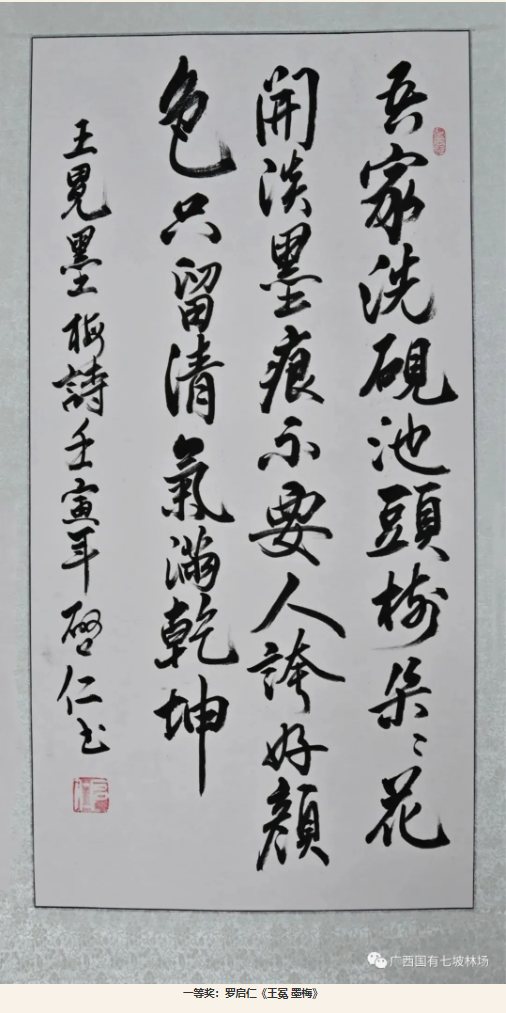 吾家洗硯池頭樹朵〻花
開淡墨痕不要人誇好顏
色只留清氣滿乾坤
王冕墨梅詩壬寅年啓仁书
广西国有七坡林场
一等奖：罗启仁《王冕 墨梅》